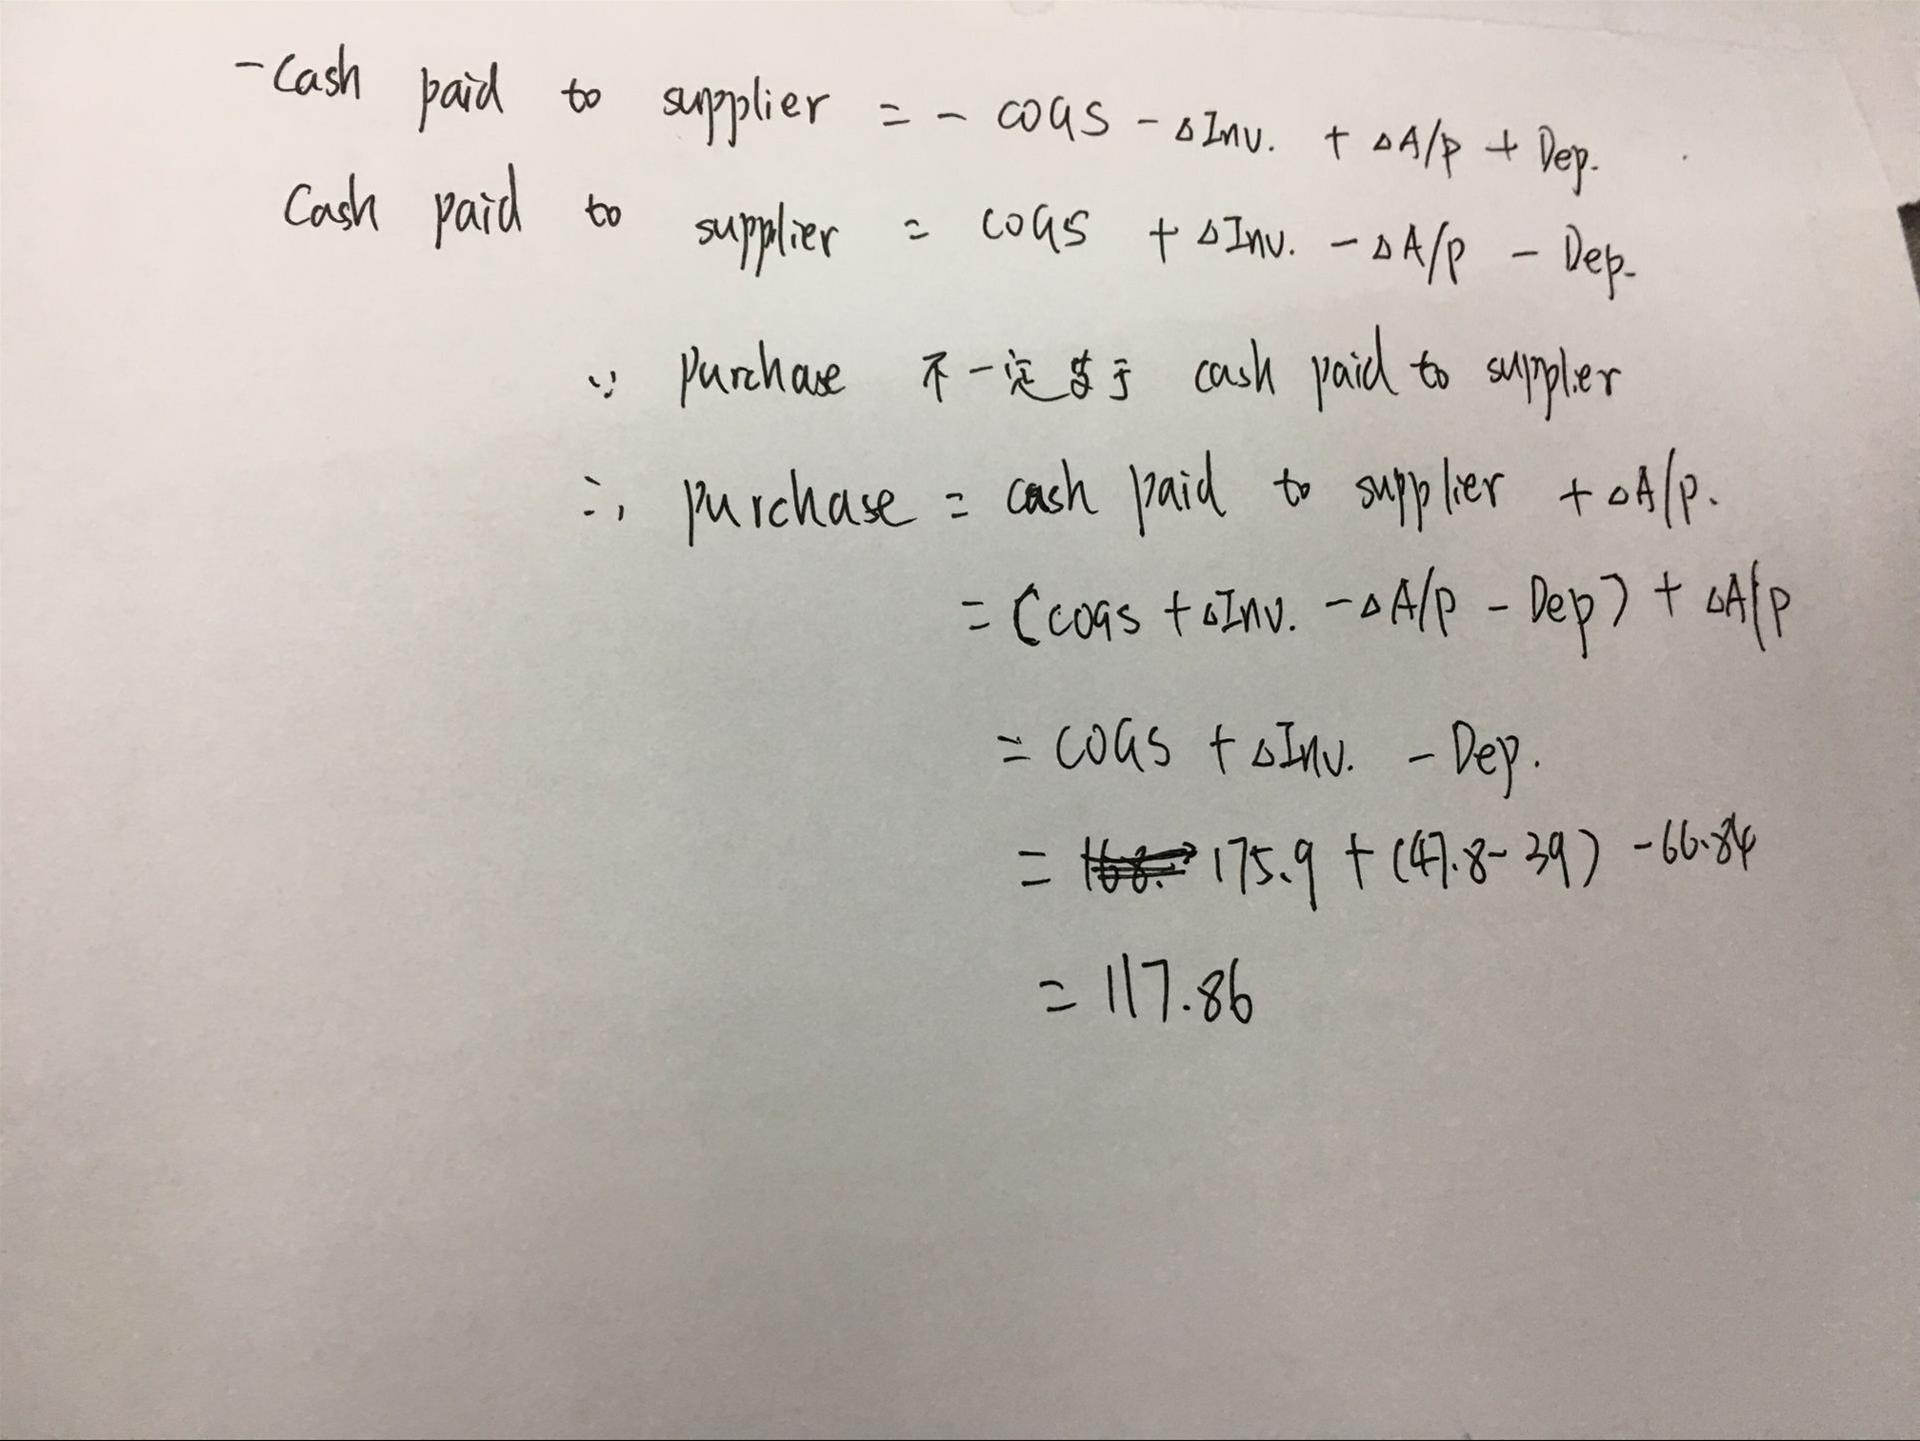 -Cash paid to supplier = - COGS - ΔInv. + ΔA/P + Dep.
Cash paid to supplier = COGS + ΔInv. - ΔA/P - Dep.
∵ Purchase 不一定等于 cash paid to supplier
∴ purchase = cash paid to supplier + ΔA/P.
= (COGS + ΔInv. - ΔA/P - Dep) + ΔA/P
= COGS + ΔInv. - Dep.
= 175.9 + (47.8 - 39) - 66.84
= 117.86